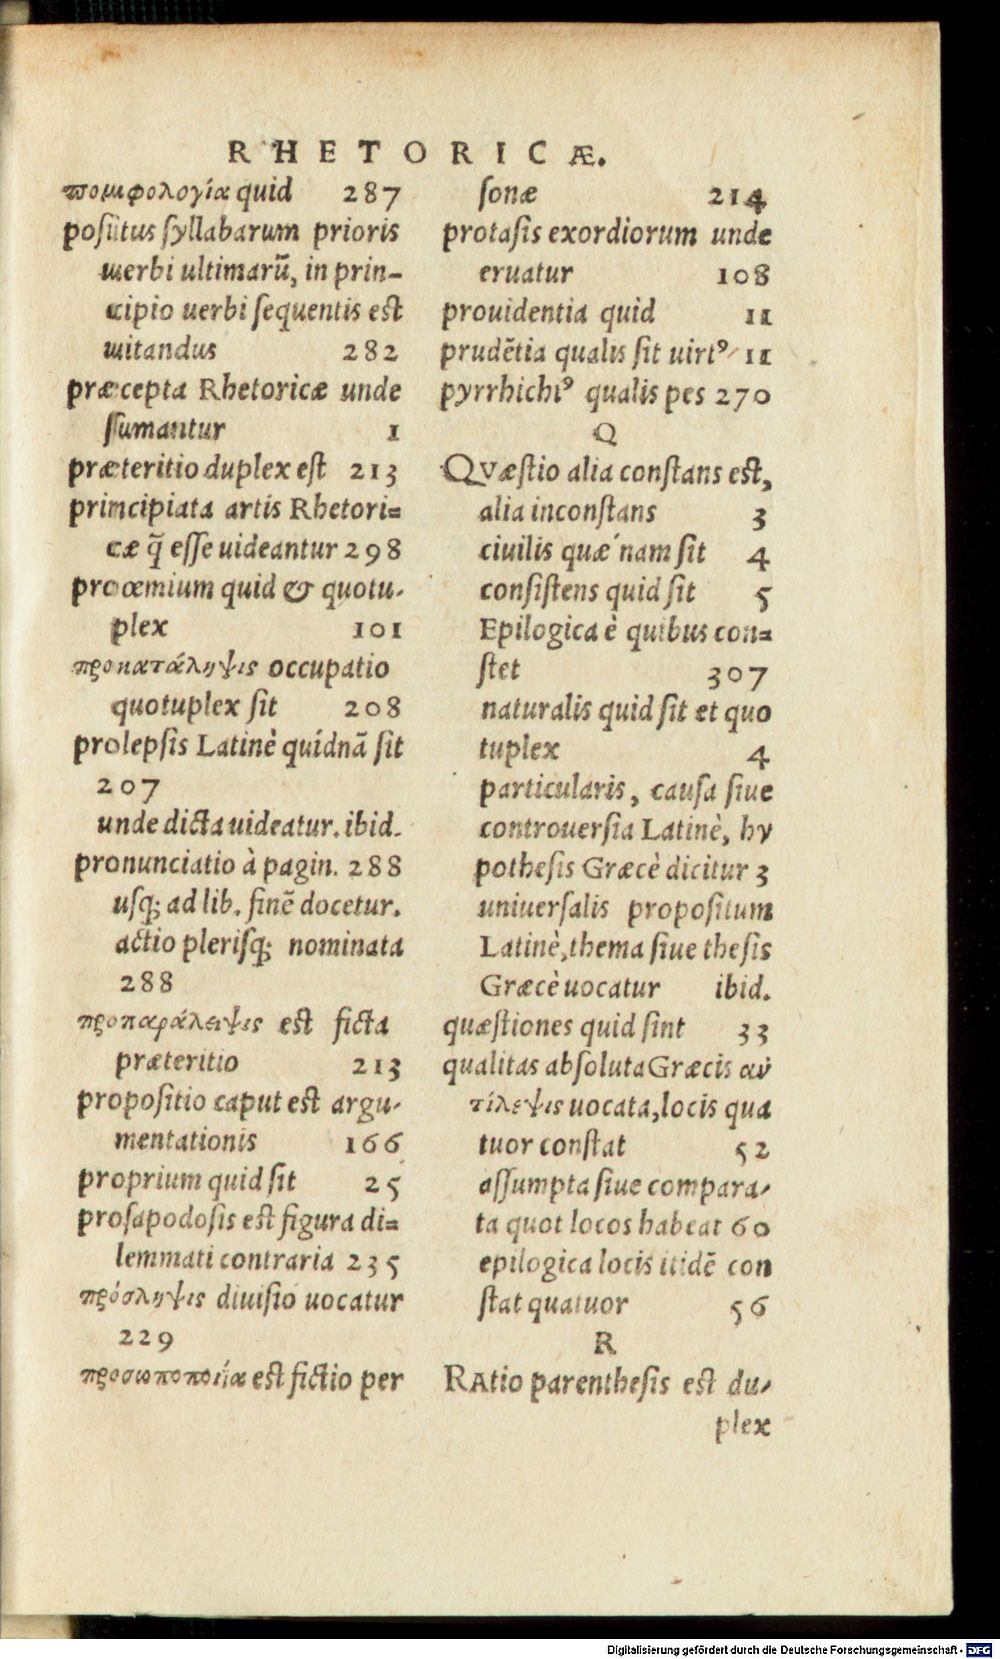 RHETORICÆ.
πομφολογία quid 287
positus syllabarum prioris
uerbi ultimarū, in prin-
cipio uerbi sequentis est
uitandus 282
præcepta Rhetoricæ unde
sumantur 1
præteritio duplex est 213
principiata artis Rhetori=
cæ q̃ esse uideantur 298
proœmium quid & quotu-
plex 101
προκατάληψις occupatio
quotuplex sit 208
prolepsis Latinè quídnã sit
207
unde dicta uideatur. ibid.
pronunciatio à pagin. 288
usq; ad lib. finẽ docetur.
actio plerisq; nominata
288
προπαράλειψις est ficta
præteritio 213
propositio caput est argu-
mentationis 166
proprium quid sit 25
prosapodosis est figura di=
lemmati contraria 235
πρόσληψις diuisio uocatur
229
προσωποποιΐα est fictio per
sonæ 214
protasis exordiorum unde
eruatur 108
prouidentia quid 11
prudẽtia qualis sit uirtꝰ 11
pyrrhichiꝰ qualis pes 270
Q
QVæstio alia constans est,
alia inconstans 3
ciuilis quæ´nam sit 4
consistens quid sit 5
Epilogica è quibus con=
stet 307
naturalis quid sit et quo
tuplex 4
particularis, causa siue
controuersia Latinè, hy
pothesis Græcè dicitur 3
uniuersalis propositum
Latinè, thema siue thesis
Græcè uocatur ibid.
quæstiones quid sint 33
qualitas absoluta Græcis ἀν
τίλεψις uocata, locis qua
tuor constat 52
assumpta siue compara-
ta quot locos habeat 60
epilogica locis itidẽ con
stat quatuor 56
R
RAtio parenthesis est du-
plex
Digitalisierung gefördert durch die Deutsche Forschungsgemeinschaft - DFG